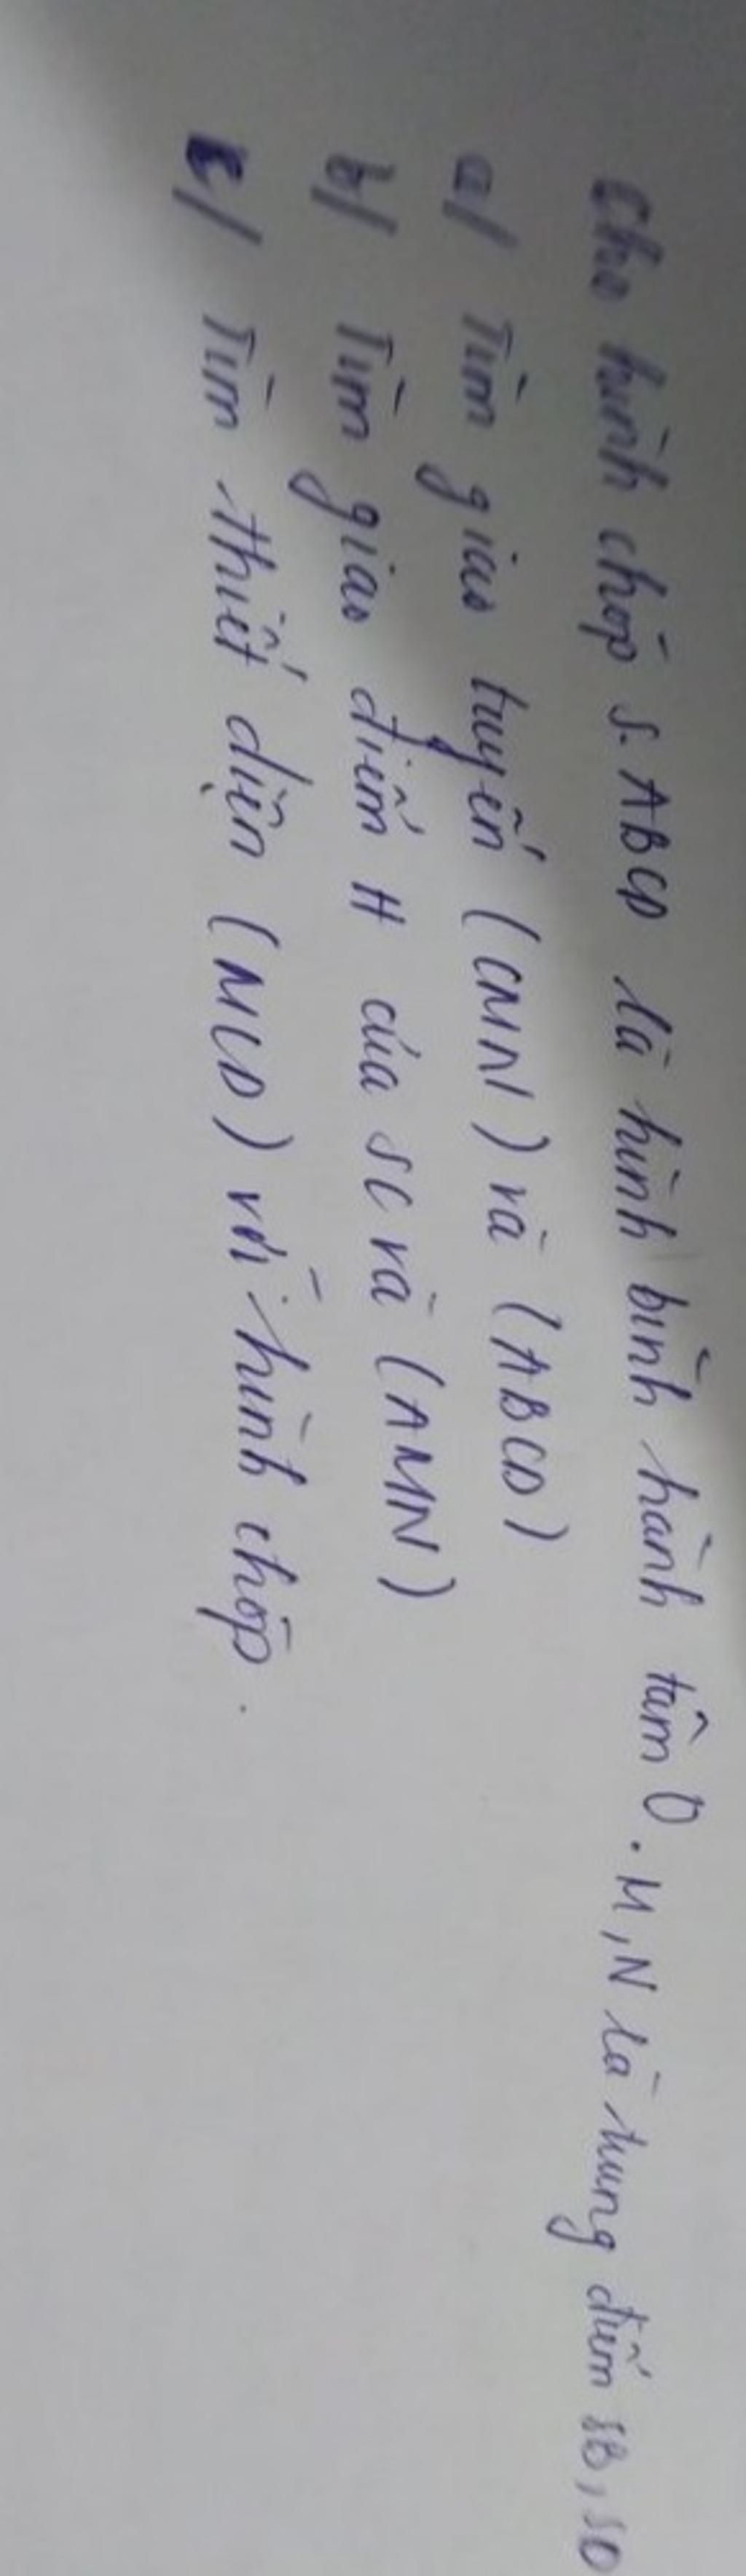 Cho hình chóp S.ABCD là hình bình hành tâm O. M, N là trung điểm SB, SD
a/ Tìm giao tuyến (CMN) và (ABCD)
b/ Tìm giao điểm H của SC và (AMN)
c/ Tìm thiết diện (MCD) với hình chóp.